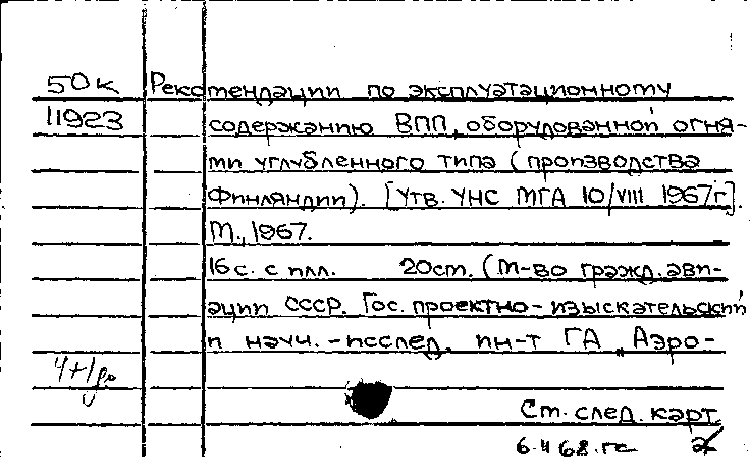 50к Рекомендации по эксплуатационному
11923 содержанию ВПП, оборудованной огня-
ми углубленного типа (производства
Финляндии). [Утв. УНС МГА 10/VIII 1967г].
М., 1967.
16с. с илл. 20см. (М-во гражд. ави-
ации СССР. Гос. проектно-изыскательский
и науч.-исслед. ин-т ГА „Аэро-
См. след. карт.